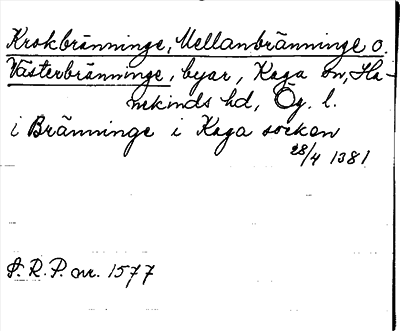 Krokbränninge, Mellanbränninge o.
Västerbränninge, byar, Kaga sn, Ha-
nekinds hd, Ög. l.
i Bränninge i Kaga socken
28/4 1381
S. R. P. nr. 1577